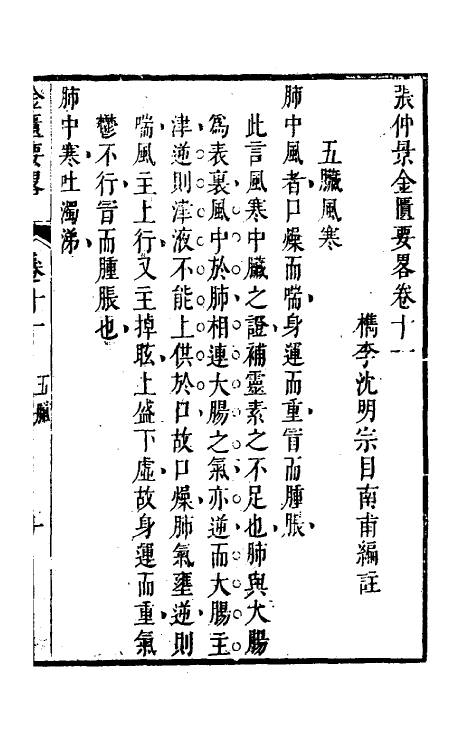 張仲景金匱要畧卷十一
檇李沈明宗目南甫編註
五臟風寒
肺中風者口燥而喘身運而重冒而腫脹
此言風寒中臟之證補靈素之不足也肺與大腸
爲表裏風中於肺相連大腸之氣亦逆而大腸主
津逆則津液不能上供於口故口燥肺氣壅逆則
喘風主上行又主掉眩上盛下虛故身運而重氣
鬱不行冒而腫脹也
肺中寒吐濁涕
金匱要畧
卷十一
五臟